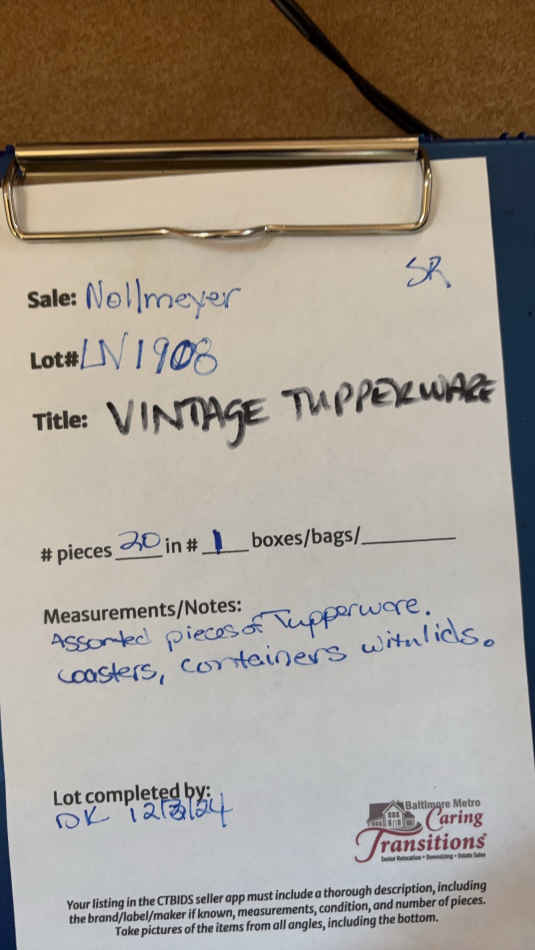 SR
Sale: Nollmeyer
Lot# LN1908
Title: VINTAGE TUPPERWARE
# pieces 20 in # 1 boxes/bags/
Measurements/Notes:
Assorted pieces of Tupperware.
coasters, containers with lids.
Lot completed by:
DK 12/3/24
Baltimore Metro
Caring
Transitions
Senior Relocation • Downsizing • Estate Sales
Your listing in the CTBIDS seller app must include a thorough description, including
the brand/label/maker if known, measurements, condition, and number of pieces.
Take pictures of the items from all angles, including the bottom.